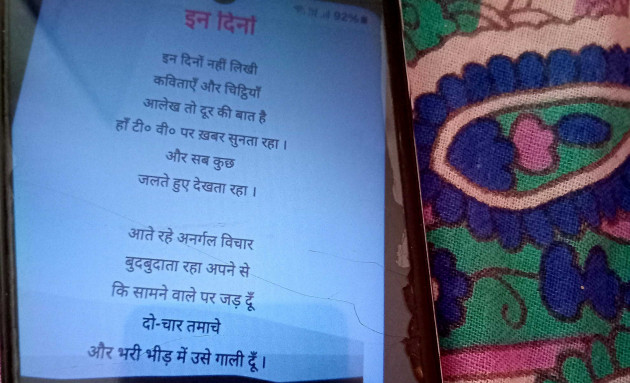 92%
इन दिनों
इन दिनों नहीं लिखी
कविताएँ और चिट्ठियाँ
आलेख तो दूर की बात है
हाँ टी० वी० पर ख़बर सुनता रहा।
और सब कुछ
जलते हुए देखता रहा।
आते रहे अनर्गल विचार
बुदबुदाता रहा अपने से
कि सामने वाले पर जड़ दूँ
दो-चार तमाचे
और भरी भीड़ में उसे गाली दूँ।